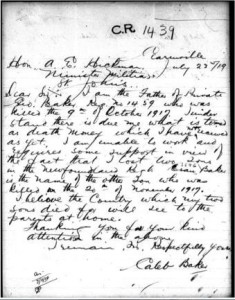 C.R 1439
Earnville
Hon. A. E. Hickman July 23rd/19
Minister Militia
St John's
Dear Sir:- I am the Father of Private
Geo. Baker Reg No 1439 who was
killed the 9th of October 1917. I under
stand there is due me what is termed
as death money which I have not received
as yet. I am unable to work and
requires some support in view of
the fact that I lost two sons
in the Newfoundland Regt. Baker
is the name of the other son who was
killed on the 20th of November 1917.
I believe the Country which my two
sons died for will see to the
parents at home.
Thanking you for your kind
attention in the
I remain Sir, Respectfully yours
Caleb Baker